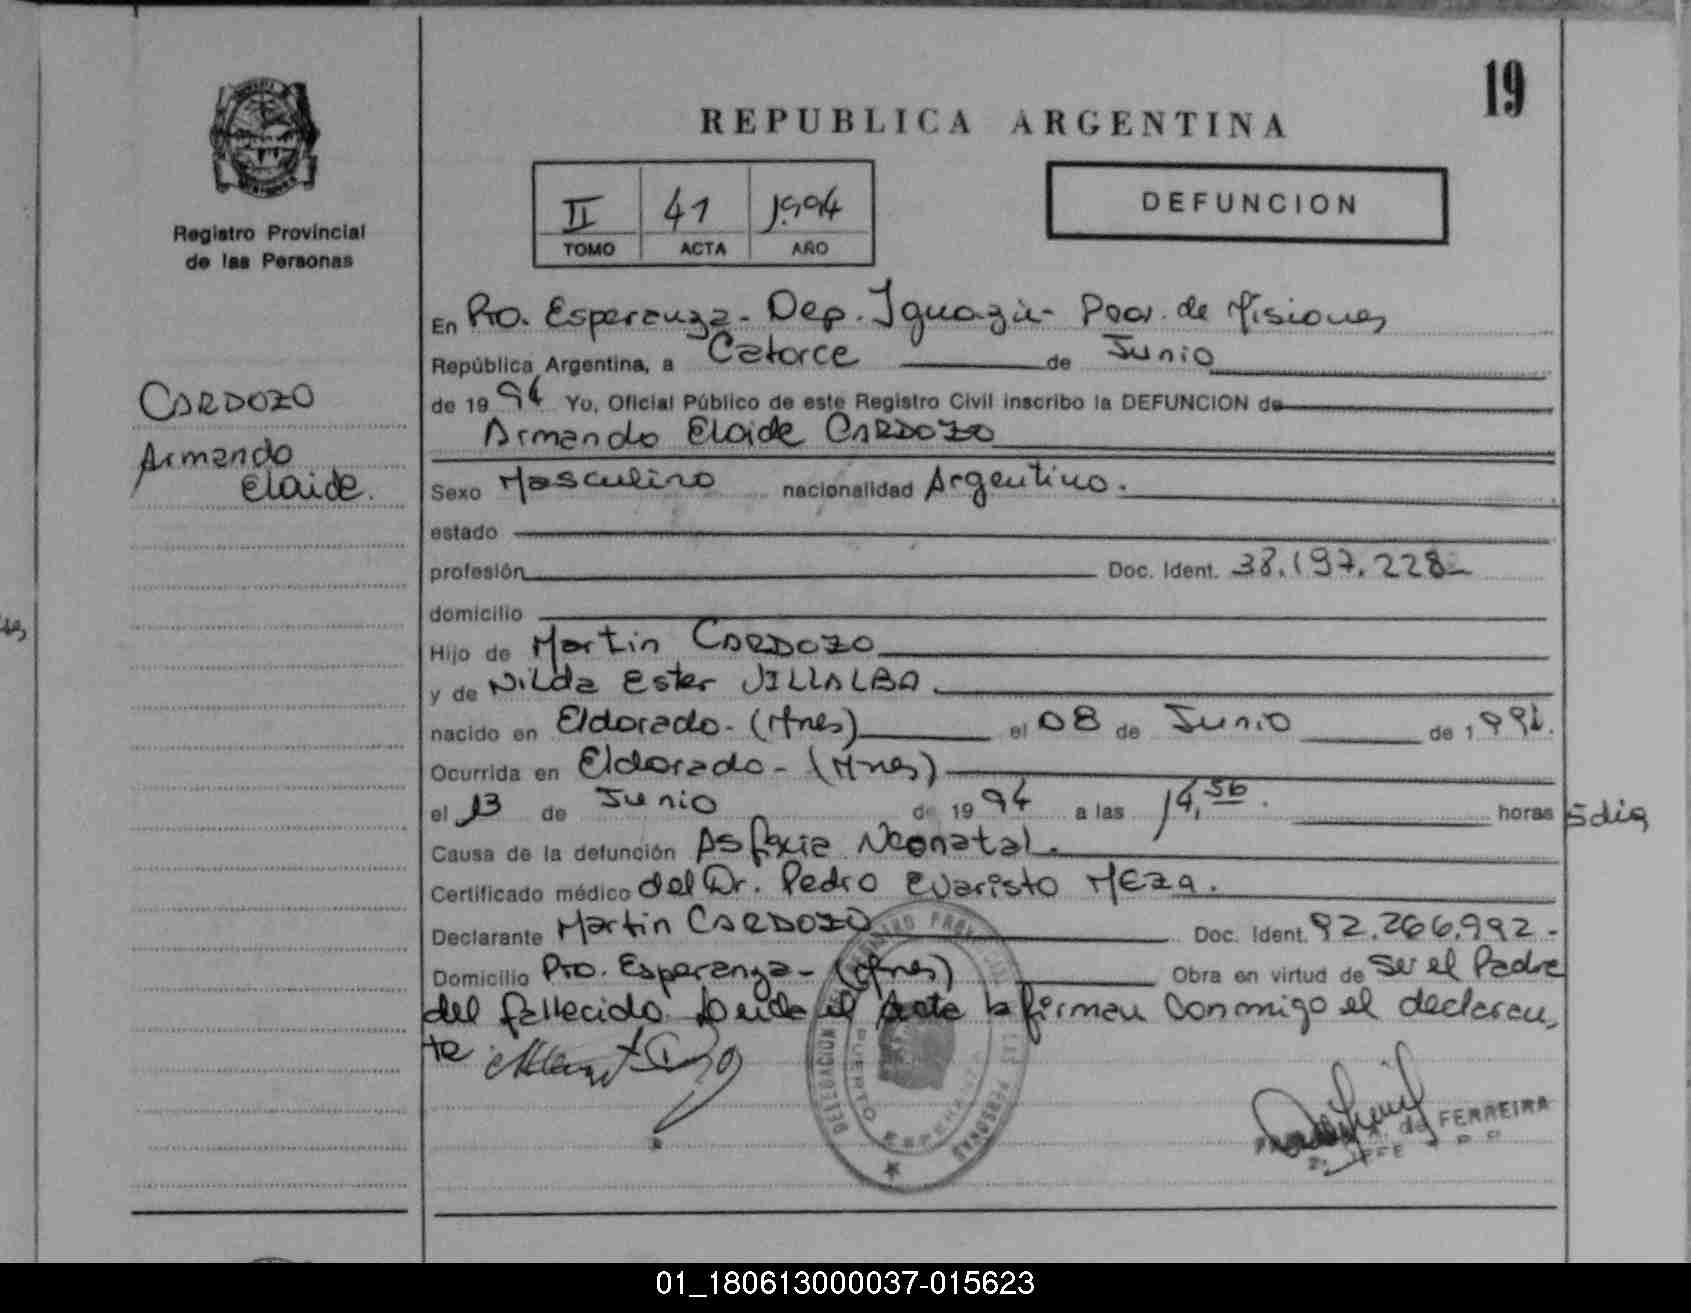 19
REPUBLICA ARGENTINA
Registro Provincial
de las Personas
II 41 1994
TOMO ACTA AÑO
DEFUNCION
CARDOZO
Armando
Elaide.
En Pto. Esperanza - Dep. Iguazú - Pcia. de Misiones
República Argentina, a Catorce de Junio
de 1994 Yo, Oficial Público de este Registro Civil inscribo la DEFUNCION de
Armando Elaide CARDOZO
Sexo Masculino nacionalidad Argentino.
estado
profesión Doc. Ident. 38.197.228-
domicilio
Hijo de Martin CARDOZO
y de Nilda Ester VILLALBA.
nacido en Eldorado - (Mnes) el 08 de Junio de 1994.
Ocurrida en Eldorado - (Mnes)
el 13 de Junio de 1994 a las 14,56. horas 5 dia
Causa de la defunción Asfixia Neonatal.
Certificado médico del Dr. Pedro Evaristo MEZA.
Declarante Martin CARDOZO Doc. Ident. 92.266.992-
Domicilio Pto. Esperanza - (Mnes) Obra en virtud de ser el Padre
del fallecido. Leida el Acta la firman conmigo el declaran
te
DELEGACION REGISTRO PROV. DE LAS PERSONAS
PUERTO ESPERANZA
de FERREIRA
JEFE
01_180613000037-015623